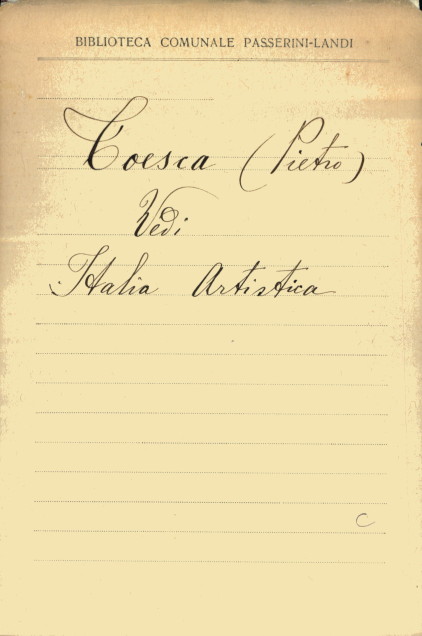 BIBLIOTECA COMUNALE PASSERINI-LANDI
Toesca (Pietro)
Vedi
Italia Artistica
C